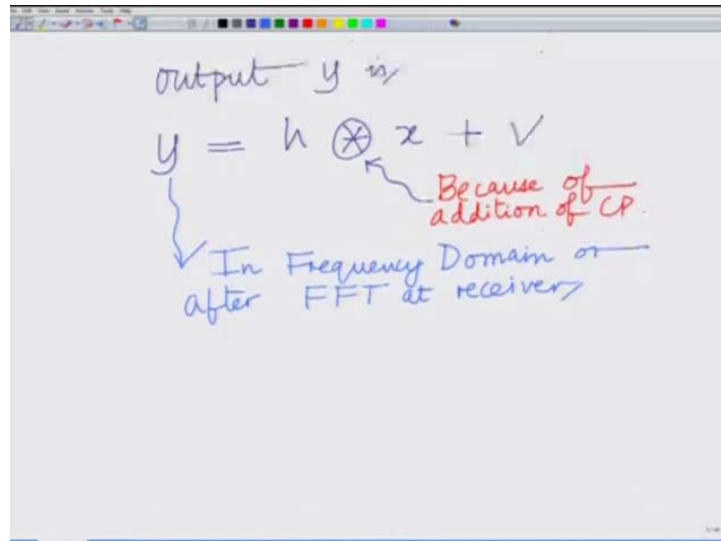 output y is,
y = h ⊛ x + v
Because of
addition of CP.
In Frequency Domain or
after FFT at receiver,